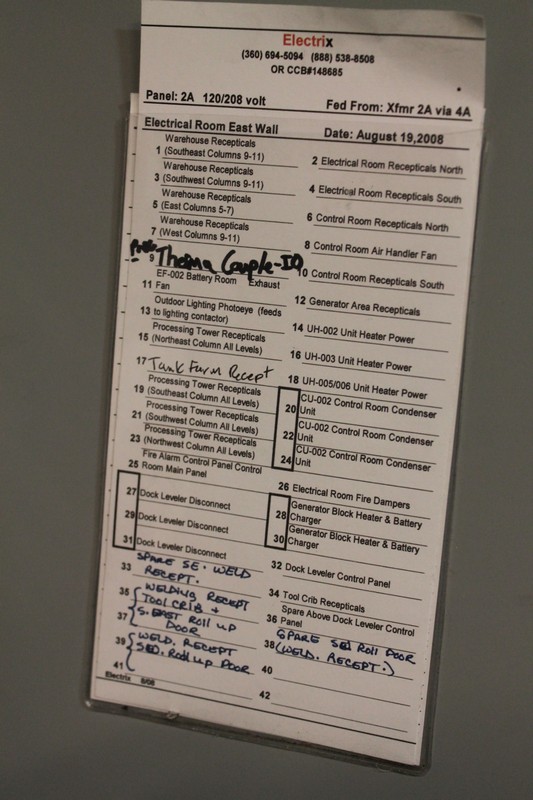 Electrix
(360) 694-5094 (888) 538-8508
OR CCB#148685
Panel: 2A 120/208 volt
Fed From: Xfmr 2A via 4A
Electrical Room East Wall
Date: August 19,2008
Warehouse Recepticals
1 (Southeast Columns 9-11)
2 Electrical Room Recepticals North
Warehouse Recepticals
3 (Southwest Columns 9-11)
4 Electrical Room Recepticals South
Warehouse Recepticals
5 (East Columns 5-7)
6 Control Room Recepticals North
Warehouse Recepticals
7 (West Columns 9-11)
8 Control Room Air Handler Fan
9 Therma Couple-
10 Control Room Recepticals South
EF-002 Battery Room Exhaust
11 Fan
12 Generator Area Recepticals
Outdoor Lighting Photoeye (feeds
13 to lighting contactor)
14 UH-002 Unit Heater Power
Processing Tower Recepticals
15 (Northeast Column All Levels)
16 UH-003 Unit Heater Power
17 Tank Farm Recept
18 UH-005/006 Unit Heater Power
Processing Tower Recepticals
19 (Southeast Column All Levels)
CU-002 Control Room Condenser
20 Unit
Processing Tower Recepticals
21 (Southwest Column All Levels)
CU-002 Control Room Condenser
22 Unit
Processing Tower Recepticals
23 (Northwest Column All Levels)
CU-002 Control Room Condenser
24 Unit
Fire Alarm Control Panel Control
25 Room Main Panel
26 Electrical Room Fire Dampers
27 Dock Leveler Disconnect
Generator Block Heater & Battery
28 Charger
29 Dock Leveler Disconnect
Generator Block Heater & Battery
30 Charger
31 Dock Leveler Disconnect
32 Dock Leveler Control Panel
SPARE SE. WELD
33 RECEPT.
34 Tool Crib Recepticals
35 WELDING RECEPT
TOOL CRIB +
Spare Above Dock Leveler Control
36 Panel
37 S. EAST ROLL UP
DOOR
SPARE SE ROLL DOOR
38 (WELD. RECEPT.)
39 WELD. RECEPT
SE. ROLL UP DOOR
40
41
42
Electrix 8/08